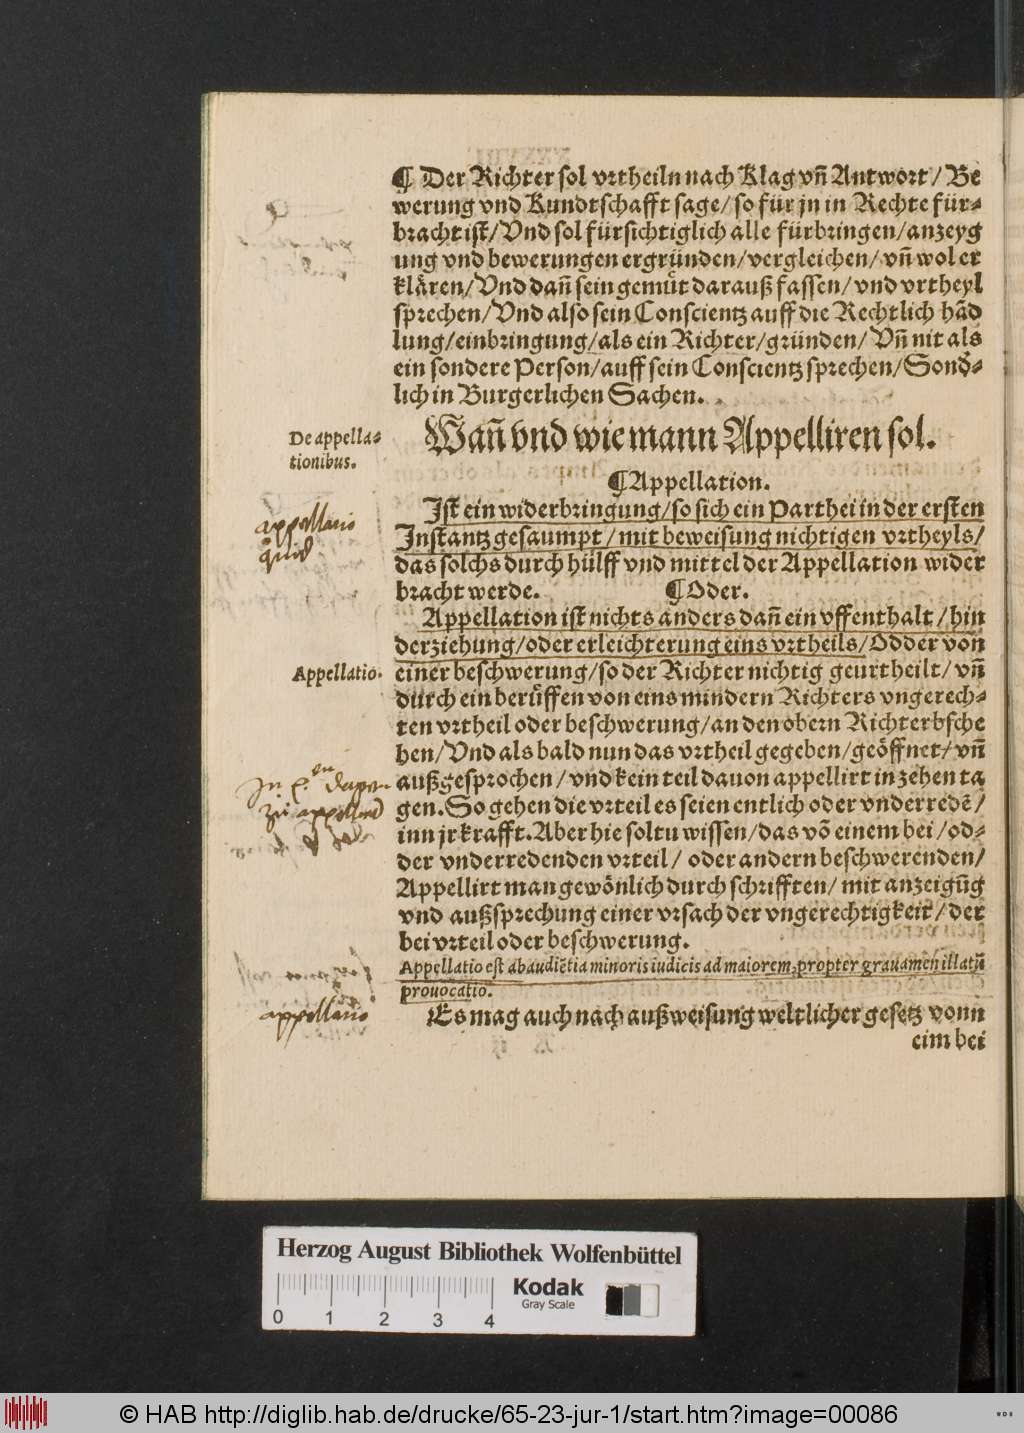 ¶ Der Richter sol vrtheiln nach Klag vñ Antwort/ Be
werung vnd Kundtschafft sage/ so für jn in Rechte für⸗
bracht ist/ Vnd sol fürsichtiglich alle fürbringen/ anzeyg
ung vnd bewerungen ergründen/ vergleichen/ vñ wol er
klären/ Vnd dañ sein gemüt darauß fassen/ vnd vrtheyl
sprechen/ Vnd also sein Conscientz auff die Rechtlich hãd
lung/ einbringung/ als ein Richter/ gründen/ Vñ nit als
ein sondere Person/ auff sein Conscientz sprechen/ Sond⸗
lich in Burgerlichen Sachen.
De appella⸗
tionibus.
Wañ vnd wie mann Appelliren sol.
¶ Appellation.
appellatio
quid
Ist ein widerbringung/ so sich ein Parthei in der ersten
Instantz gesaumpt/ mit beweisung nichtigen vrtheyls/
das solchs durch hülff vnd mittel der Appellation wider
bracht werde. ¶ Oder.
Appellation ist nichts anders dañ ein vffenthalt/ hin
derziehung/ oder erleichterung eins vrtheils/ Odder von
Appellatio.
einer beschwerung/ so der Richter nichtig geurtheilt/ vñ
durch ein berüffen von eins mindern Richters vngerech⸗
ten vrtheil oder beschwerung/ an den obern Richter bsche
hen/ Vnd als bald nun das vrtheil gegeben/ geöffnet/ vñ
außgesprochen/ vnd kein teil dauon appellirt in zehen ta
gen. So gehen die vrteil es seien entlich oder vnderredẽ/
inn jr krafft. Aber hie soltu wissen/ das võ einem bei/ od⸗
der vnderredenden vrteil/ oder andern beschwerenden/
Appellirt man gewönlich durch schrifften/ mit anzeigũg
vnd außsprechung einer vrsach der vngerechtigkeit/ der
bei vrteil oder beschwerung.
Appellatio est abaudiẽtia minoris iudicis ad maiorem, propter grauamen illatũ
prouocatio.
appellatio
Es mag auch nach außweisung weltlicher gesetz vonn
eim bei
Herzog August Bibliothek Wolfenbüttel
Kodak
Gray Scale
0 1 2 3 4
© HAB http://diglib.hab.de/drucke/65-23-jur-1/start.htm?image=00086